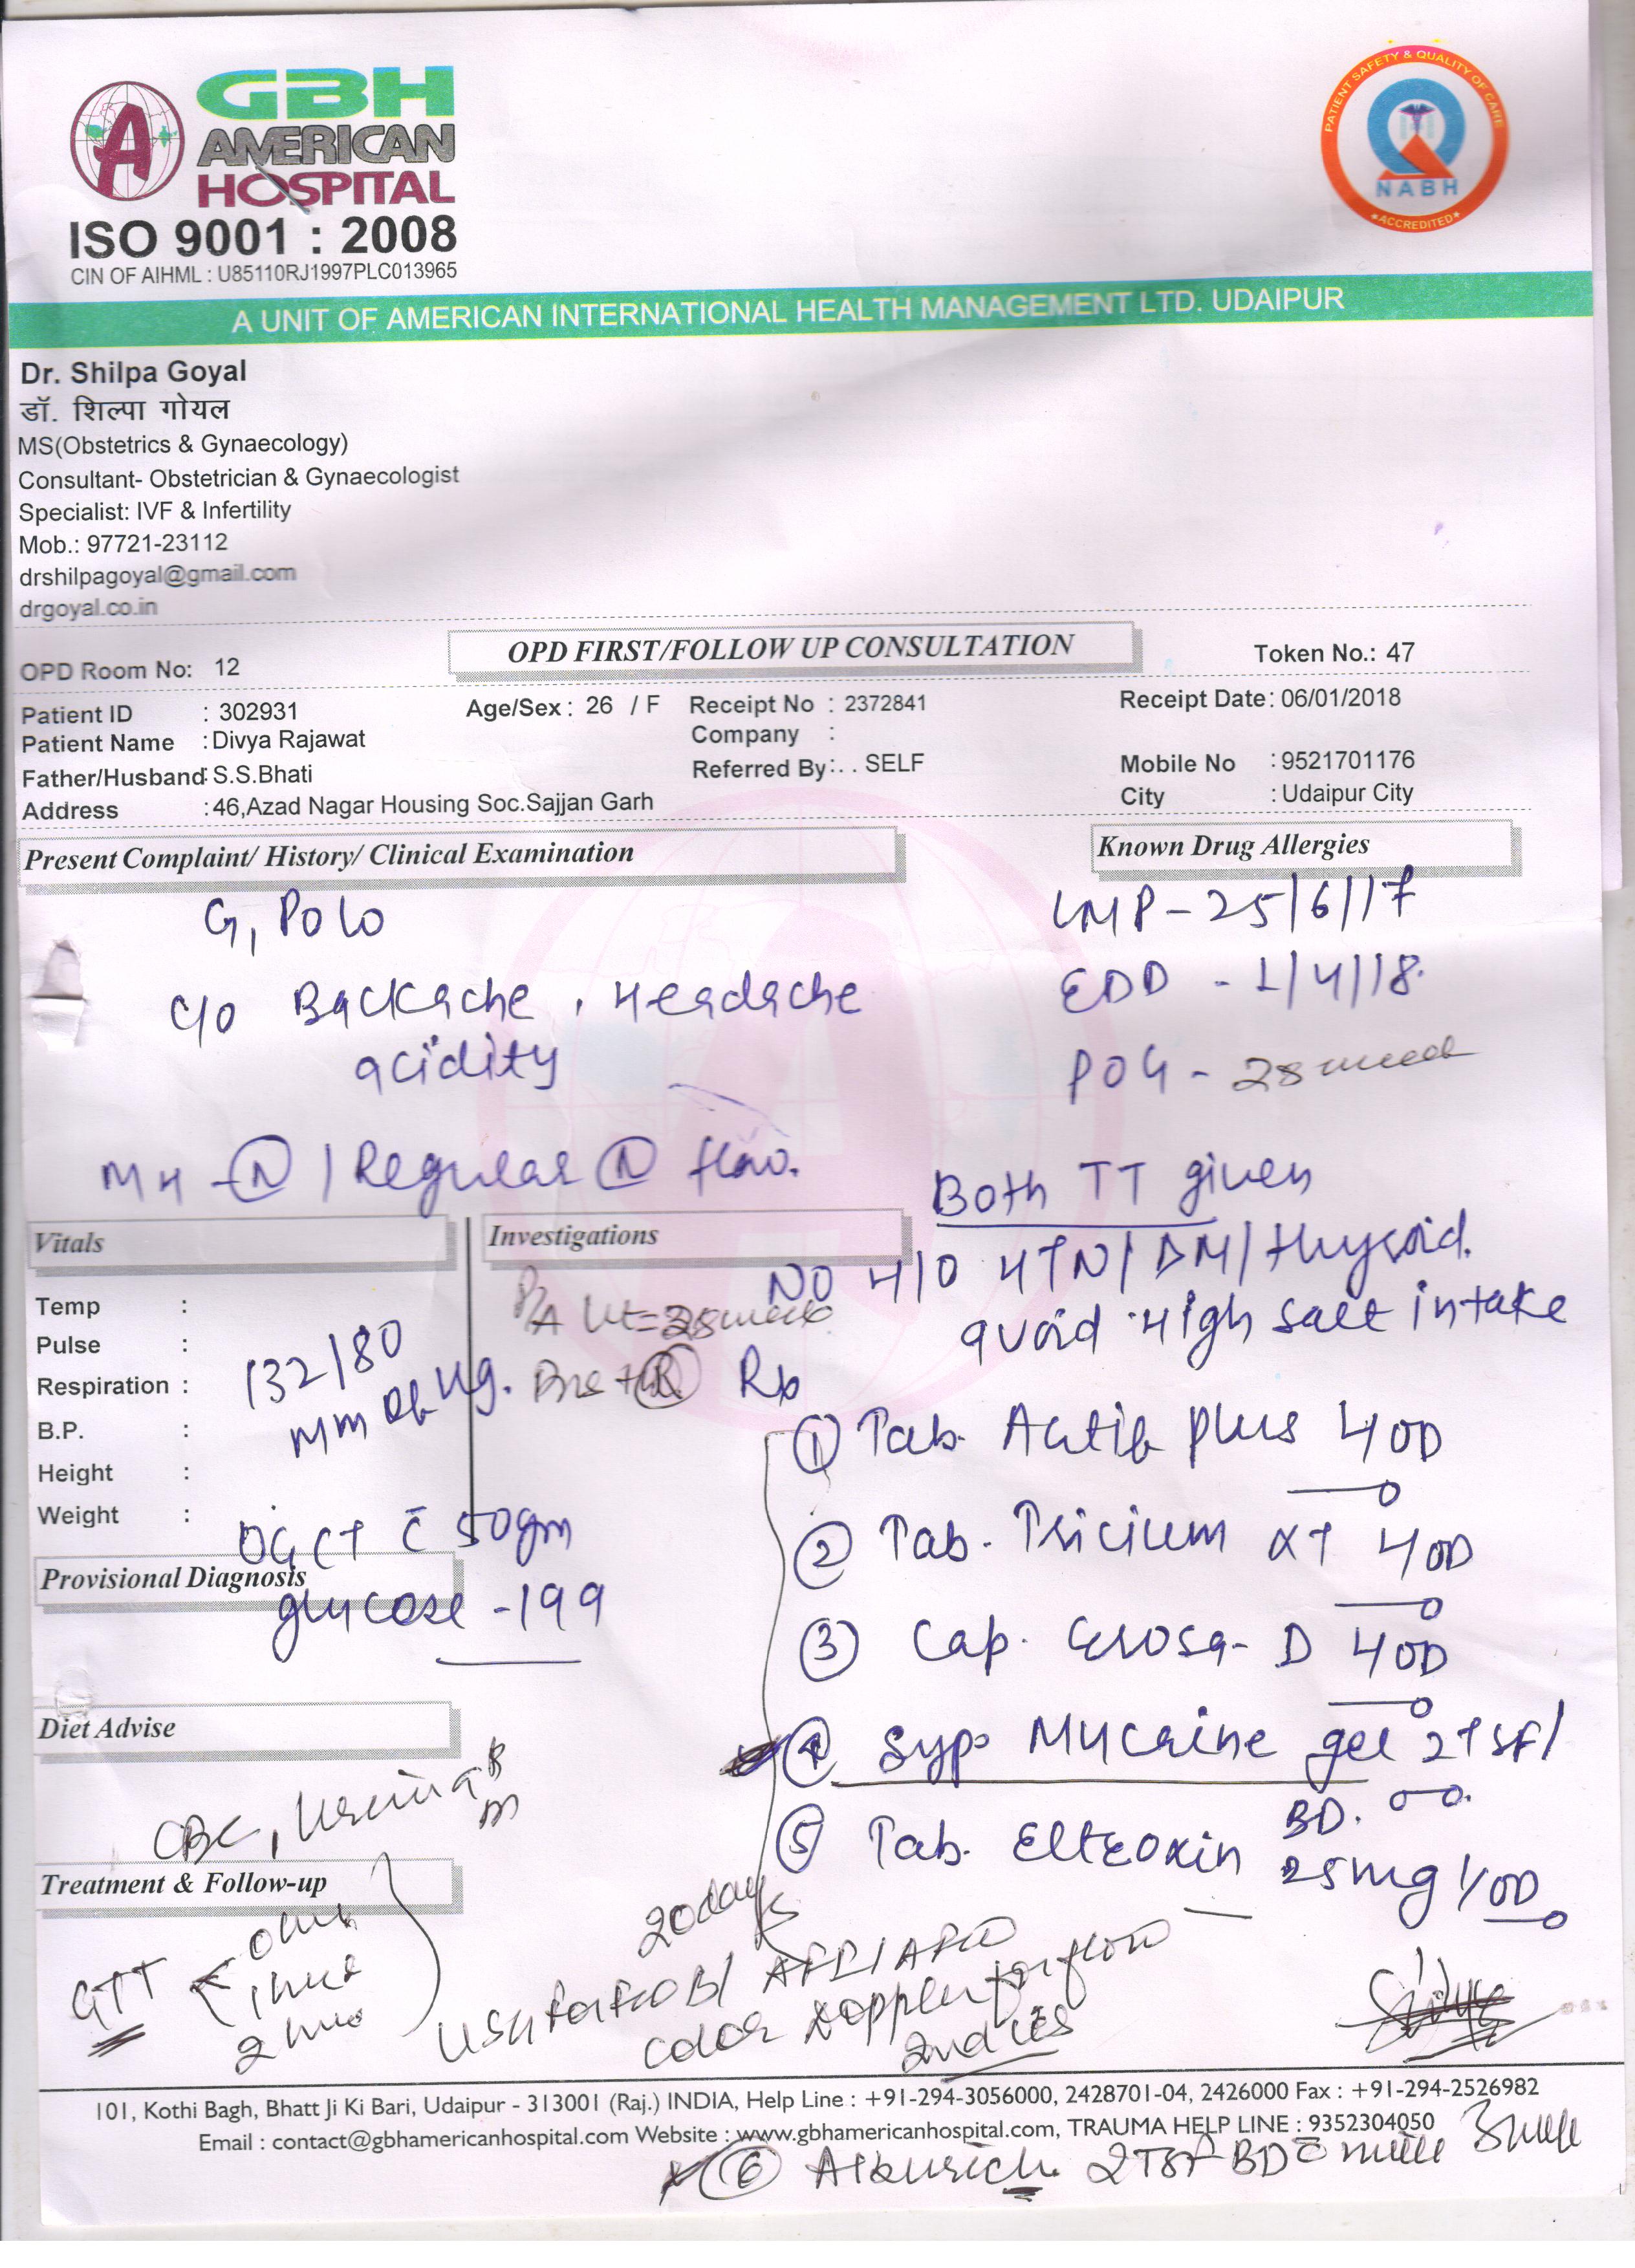 GBH
AMERICAN
HOSPITAL
ISO 9001 : 2008
CIN OF AIHML : U85110RJ1997PLC013965
PATIENT SAFETY & QUALITY OF CARE
NABH
ACCREDITED
A UNIT OF AMERICAN INTERNATIONAL HEALTH MANAGEMENT LTD. UDAIPUR
Dr. Shilpa Goyal
डॉ. शिल्पा गोयल
MS(Obstetrics & Gynaecology)
Consultant- Obstetrician & Gynaecologist
Specialist: IVF & Infertility
Mob.: 97721-23112
drshilpagoyal@gmail.com
drgoyal.co.in
OPD Room No: 12
OPD FIRST/FOLLOW UP CONSULTATION
Token No.: 47
Patient ID : 302931 Age/Sex : 26 / F Receipt No : 2372841 Receipt Date: 06/01/2018
Patient Name : Divya Rajawat Company :
Father/Husband: S.S.Bhati Referred By:. . SELF Mobile No : 9521701176
Address : 46,Azad Nagar Housing Soc.Sajjan Garh City : Udaipur City
Present Complaint/ History/ Clinical Examination
Known Drug Allergies
G1 P0L0
LMP - 25/6/17
c/o Backache, Headache
acidity
EDD - 1/4/18.
POG - 28 week
MH - N / Regular N flow.
Both TT given
Vitals
Investigations
NO H/O HTN / DM / thyroid.
avoid High salt intake
Temp :
Pulse :
Respiration :
B.P. :
Height :
Weight :
132/80
mm of Hg.
P/A Ut = 28 week
Rx
1 Tab. Actif plus 1 OD
2 Tab. Tricium XT 1 OD
3 Cap. D 1 OD
4 Syp. Mucaine gel 2 tsf /
BD.
5 Tab. Eltroxin 25mg 1 OD
OGCT c 50gm
glucose - 199
Provisional Diagnosis
Diet Advise
CBC, Urine
Treatment & Follow-up
GTT
1 hour
2 hour
20 days
USG
color Doppler for flow
Alkurich 2TSF BD
101, Kothi Bagh, Bhatt Ji Ki Bari, Udaipur - 313001 (Raj.) INDIA, Help Line : +91-294-3056000, 2428701-04, 2426000 Fax : +91-294-2526982
Email : contact@gbhamericanhospital.com Website : www.gbhamericanhospital.com, TRAUMA HELP LINE : 9352304050